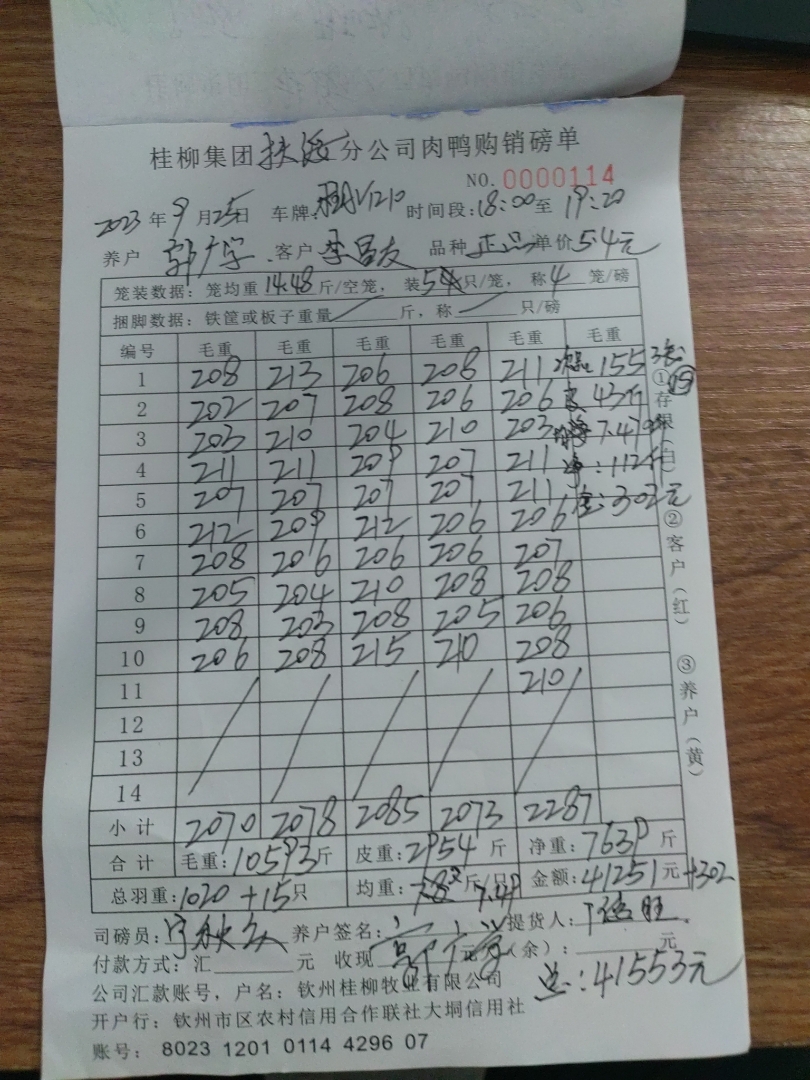 桂柳集团扶绥分公司肉鸭购销磅单
NO. 0000114
2023 年 9 月 25 日 车牌: V1210 时间段: 18:00 至 19:20
养户 客户 李昌友 品种 正品 单价 5.4元
笼装数据: 笼均重 14.48 斤/空笼, 装 5 只/笼, 称 4 笼/磅
捆脚数据: 铁筐或板子重量 斤, 称 只/磅
编号 毛重 毛重 毛重 毛重 毛重 毛重
1 208 213 206 208 211 次品 155
2 202 207 208 206 206 皮 43斤
3 203 210 204 210 203 7.47
4 211 211 209 207 211 净: 112斤
5 207 207 207 207 211 金: 302元
6 212 209 212 206 206
7 208 206 206 206 207
8 205 204 210 208 208
9 208 203 208 205 206
10 206 208 215 210 208
11 210
12
13
14
小计 2070 2078 2085 2073 2287
合计 毛重: 10593 斤 皮重: 2954 斤 净重: 7639 斤
总羽重: 1020 +15 只 均重: 7.49 斤/只 金额: 41251 元 +302
司磅员: 养户签名: 提货人:
付款方式: 汇 元 收现 元 (余): 元
总: 41553元
公司汇款账号, 户名: 钦州桂柳牧业有限公司
开户行: 钦州市区农村信用合作联社大垌信用社
账号: 8023 1201 0114 4296 07
①存根(白)
②客户(红)
③养户(黄)